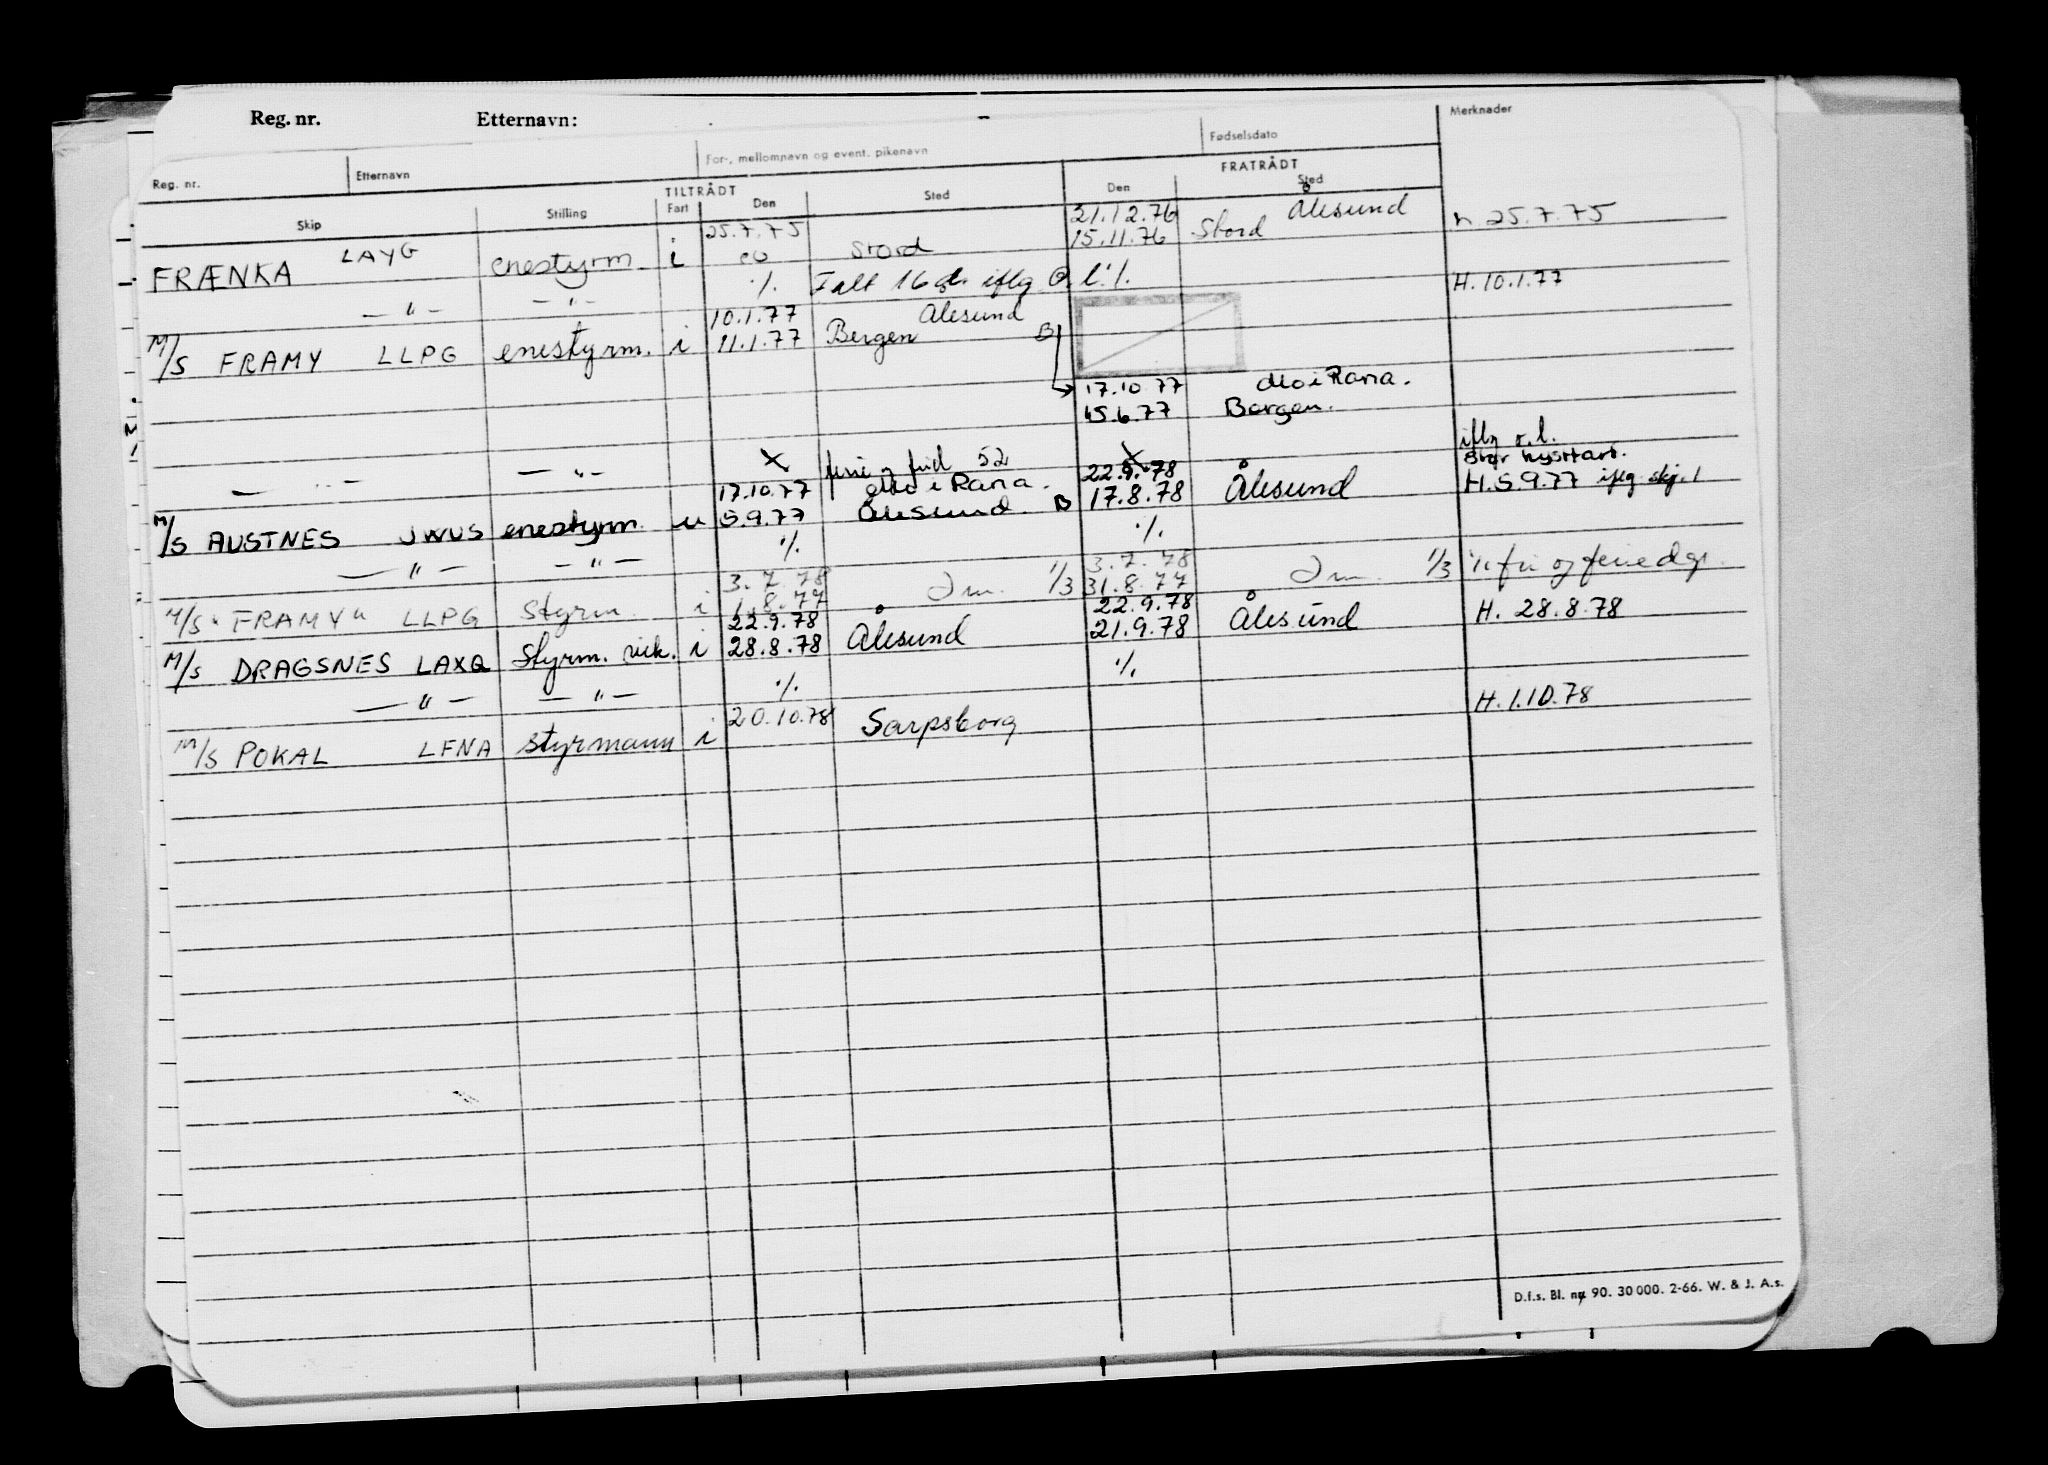 Reg. nr. Etternavn:
Merknader
Reg. nr. Etternavn For-, mellomnavn og event. pikenavn Fødselsdato
TILTRÅDT FRATRÅDT
Skip Stilling Fart Den Sted Den Sted
25.7.75 21.12.76 Ålesund
FRÆNKA LAYG enestyrm i Stord 15.11.76 Stord h. 25.7.75
— " — — " — ./. Falt 16 d. iflg. ./.
10.1.77 Ålesund H. 10.1.77
M/S FRAMY LLPG enestyrm. i 11.1.77 Bergen B
17.10.77 Mo i Rana.
15.6.77 Bergen.
— " — — " — X ferie og frid 52 X iflg r.l.
17.10.77 Mo i Rana. 22.9.78 stor kystfart.
M/S AUSTNES JWUS enestyrm. u 5.9.77 Ålesund. B 17.8.78 Ålesund H. 5.9.77 iflg. skj. 1
— " — — " — ./. ./.
3.7.78 3.7.78
M/S "FRAMY" LLPG Styrm. i 1.8.77 1/3 31.8.77 1/3 fri og feriedgr.
22.9.78 22.9.78
M/S DRAGSNES LAXQ Styrm. vik. i 28.8.78 Ålesund 21.9.78 Ålesund H. 28.8.78
— " — — " — ./. ./.
M/S POKAL LFNA styrmann i 20.10.78 Sarpsborg H. 1.10.78
D.f.s. Bl. nr. 90. 30 000. 2-66. W. & J. A.s.